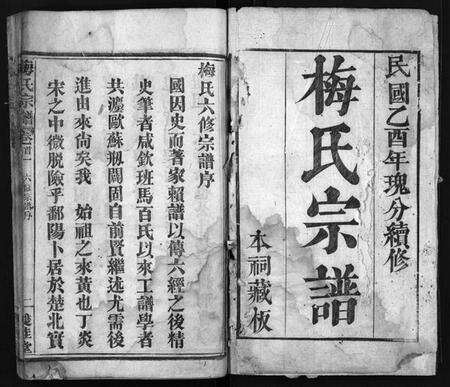 民國乙酉年瑰分續修
梅氏宗譜
本祠藏板
梅氏六修宗譜序
國因史而著家賴譜以傳六經之後精
史筆者咸欽班馬百氏以來工譜學者
共瀍歐蘇剏闢固自前賢繼述尤需後
進由來尚矣我 始祖之來黃也丁炎
宋之中微脫險乎鄱陽卜居於楚北實
梅氏宗譜